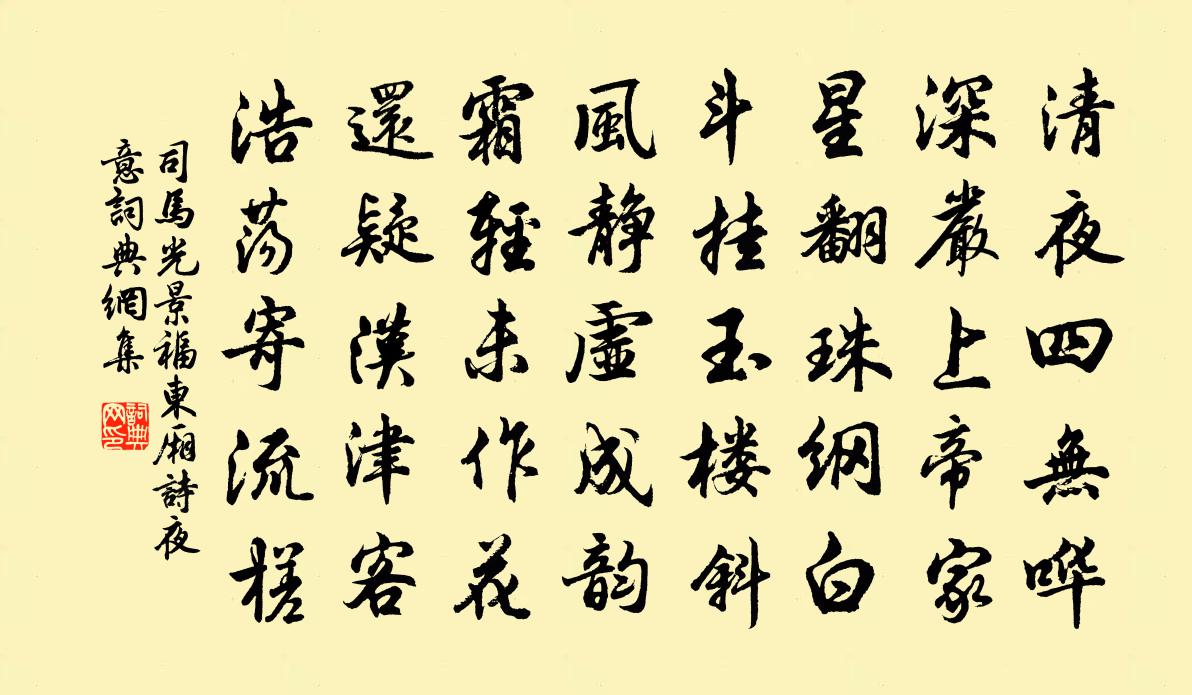 清夜四無哗
深嚴上帝家
星翻珠纲白
斗挂玉楼斜
風静虚成韵
霜輕未作花
還疑漢津客
浩荡寄流槎
司馬光景福東廂詩夜
意詞典網集
詞典
网印